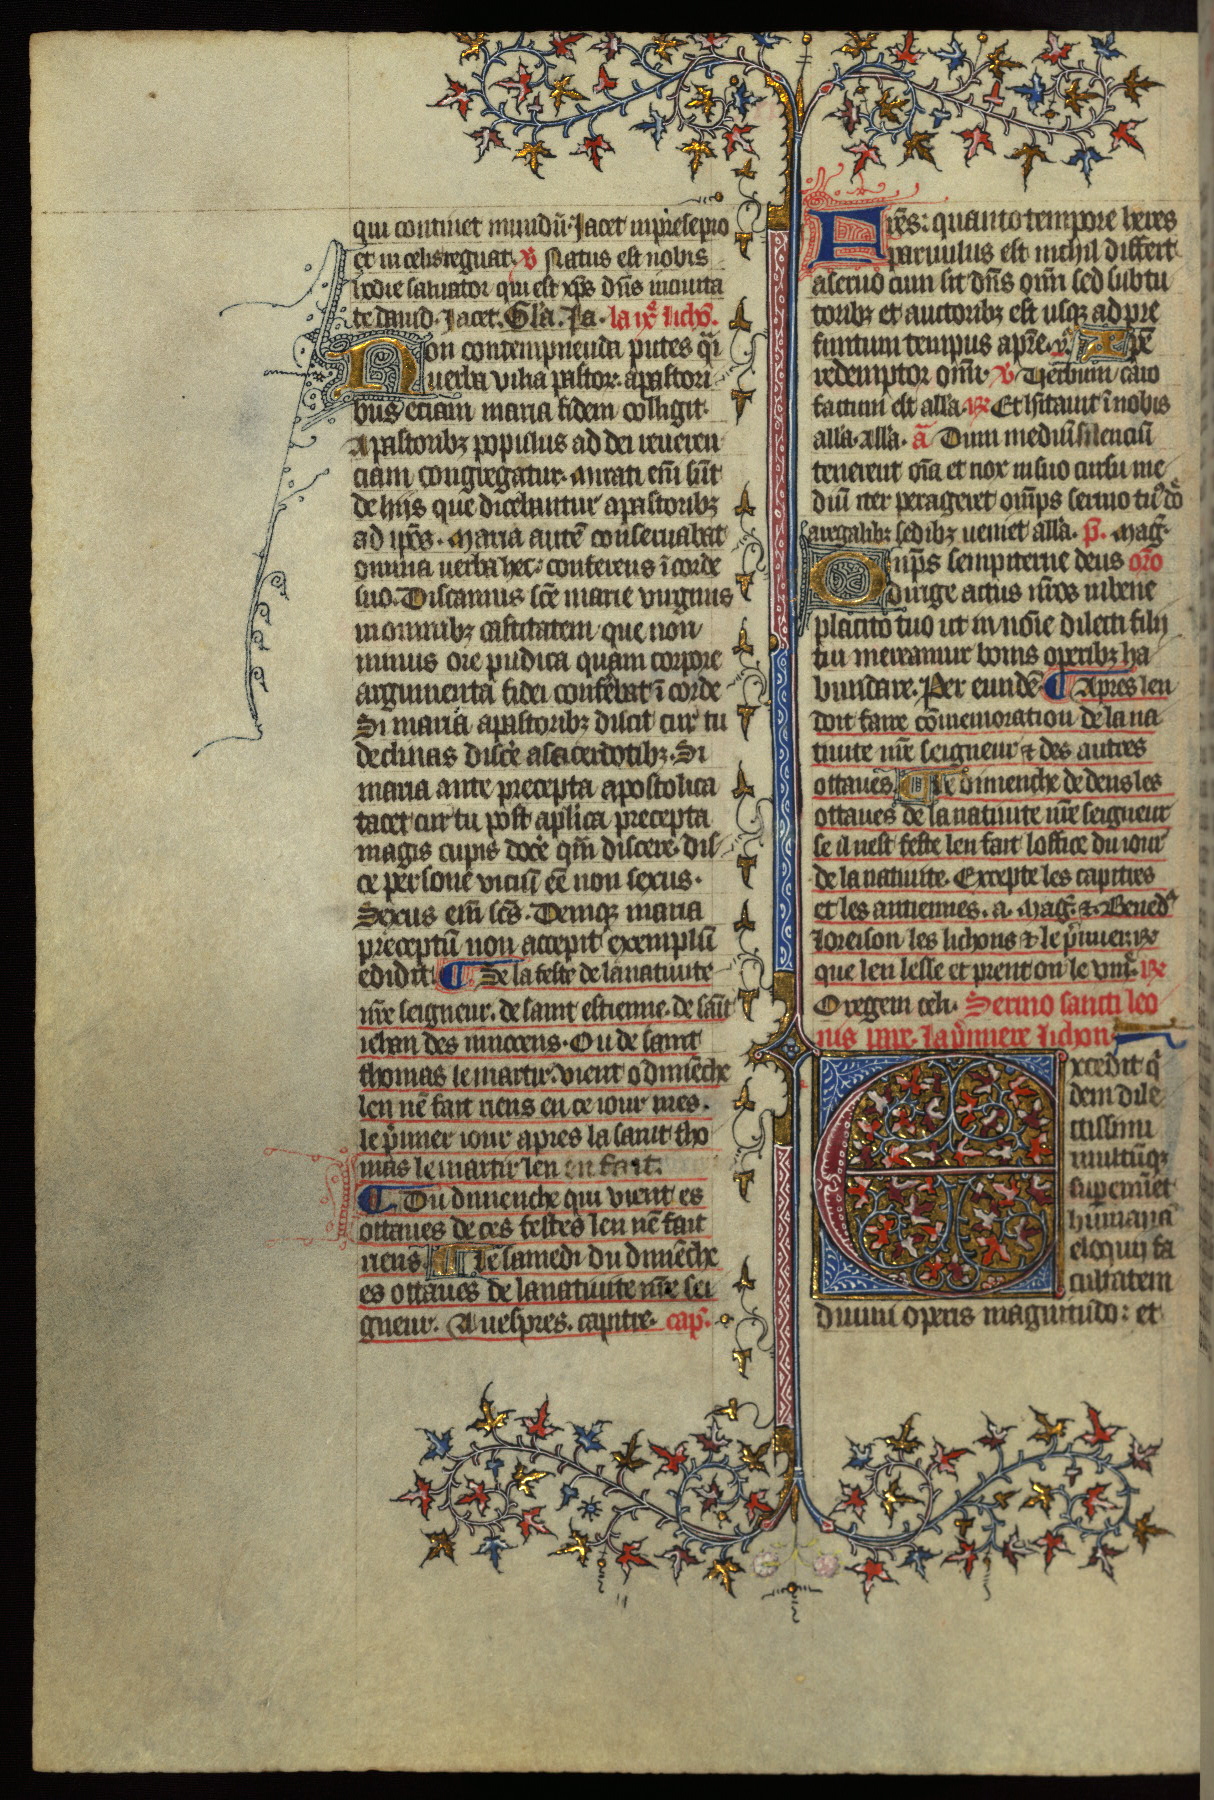 qui continet mundū. Jacet in presepio
et in celis regnat. v̄ Natus est nobis
hodie saluator qui est xp̄s dn̄s in ciuita
te dauid. Jacet. Gl̄a. Ja. la ix.e lichō.
Non contempnenda putes q̄i
uerba uilia pastor. a pastori
bus etiam maria fidem colligit.
A pastoribꝫ populus ad dei reueren
ciam congregatur. Mirati em̄ sūt
de hijs que dicebantur a pastoribꝫ
ad ip̄os. Maria autē conseruabat
omnia uerba hec: conferens ī corde
suo. Discamus sc̄e marie virginis
in omnibꝫ castitatem que non
minus ore pudica quam corpore
argumenta fidei conferebat ī corde
Si maria a pastoribꝫ discit cur tu
declinas discere a sacerdotibꝫ. Si
maria ante precepta apostolica
tacet cur tu post ap̄lica precepta
magis cupis docere qm̄ discere. dis
ce persone viciū eē non sexus.
Sexus em̄ sc̄s. Deniqꝫ maria
preceptū non accepit exemplū
edidit. ¶ De la feste de la natiuite
nr̄e seigneur. de saint estienne. de saīt
iehan des innocens. Ou de saint
thomas le martir. vient o dimēche
len nē fait riens en ce iour mes.
le p̄mier iour apres la saint tho
mas le martir len en fait.
¶ Du dimenche qui vient es
ottaues de ces festes len nē fait
riens. ¶ Le samedi du dimēche
es ottaues de la natiuite nr̄e sei
gneur. A uespres. capitre. cap̄.
Fr̄es: quanto tempore heres
paruulus est nichil differt
a seruo cum sit dn̄s om̄i sed sub tu
toribꝫ et auctoribꝫ est usqꝫ ad pre
finitum tempus a pr̄e. xp̄e
redemptor om̄i. v̄ Uerbum caro
factum est all̄a. ℟ Et hītauit ī nobis
all̄a. all̄a. ā Dum mediū silenciū
tenerent om̄a et nox in suo cursu me
diū iter perageret om̄ps sermo tuꝰ dn̄e
a regalibꝫ sedibꝫ ueniet all̄a. p̄. Mag̃.
Om̄ps sempiterne deus or̄o
dirige actus nr̄os in bene
placito tuo ut in no̅ie dilecti filij
tui mereamur bonis operibꝫ ha
bundare. Per eundē ¶ Apres len
doit faire cōmemoration de la na
tiuite nr̄e seigneur ⁊ des autres
ottaues. ¶ Le dimenche de dens les
ottaues de la natiuite nr̄e seigneur
se il nest feste len fait loffice du iour
de la natiuite. Excepte les capitres
et les antiennes. a. Mag̃. ⁊. Bened̄
Loreison les lichons ⁊ le p̄mier. ℟
que len lesse et prent on le viii.e ℟
O regem celi. Sermo sancti leo
nis pape. La p̄miere lichon.
Excedit q̄
dem dile
ctissimi
multūqꝫ
sup eminet
humana
eloquij fa
cultatem
diuini operis magnitudo: et